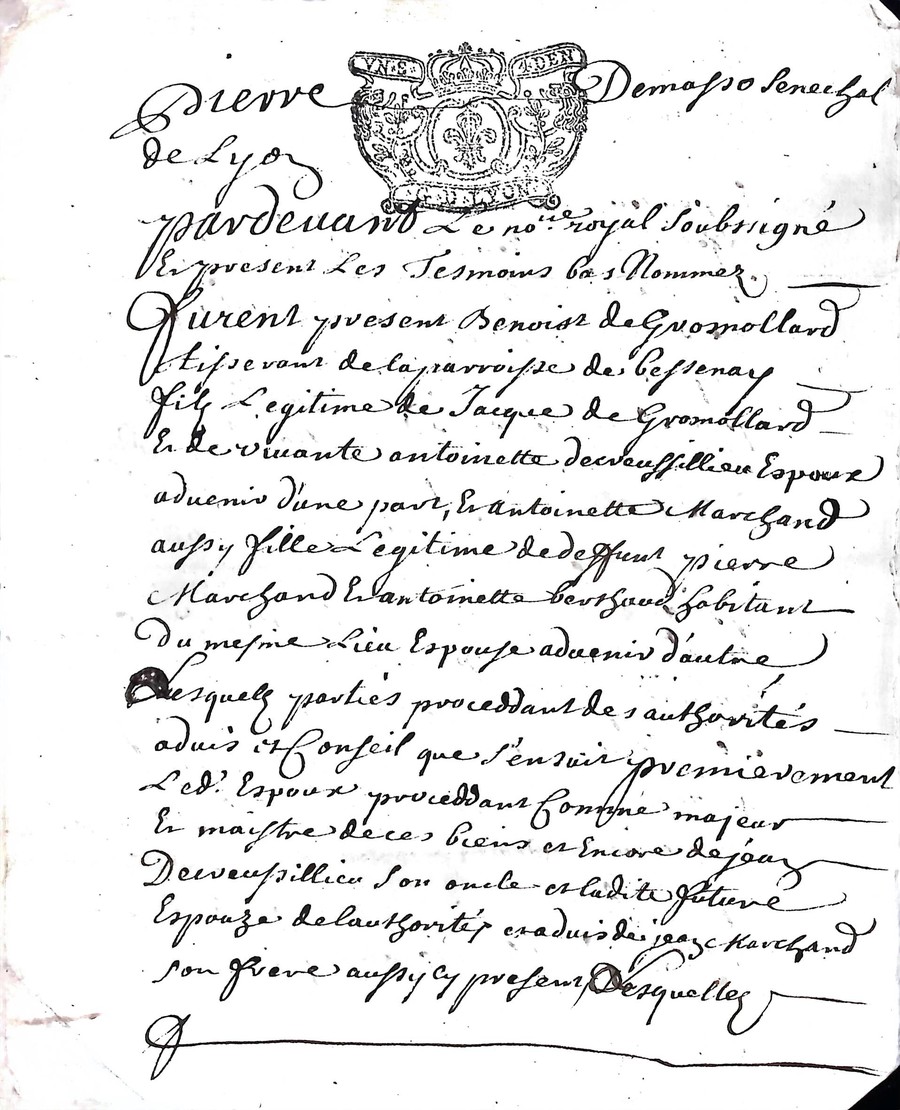 VN S. 4. DEN
Pierre Demasso Senechal
de Lyon
G. D. LYON
pardevant Le no.re royal soubssigné
Et present Les Tesmoins bas Nommez
furent present Benoist de Gromollard
tisserant de la parroisse de bessenay
filz Legitime de Jacque de Gromollard
Et de vivante antoinette decroussillieu Espoux
advenir d'une part, Et antoinette Marchand
aussy fille Legitime de deffunt pierre
Marchand Et antoinette berthaud habitant
du mesme Lieu Espouse advenir d'autre
Lesquelz partiés proceddant des authorités
advis et Conseil que s'ensuit premierement
Led.t Espoux proceddant Comme majeur
Et maistre de ces biens et Encore de jean
Decroussillieu son oncle et ladite future
Espouze de lauthorités et advis de jean Marchand
son frere aussy cy present, Desquelles